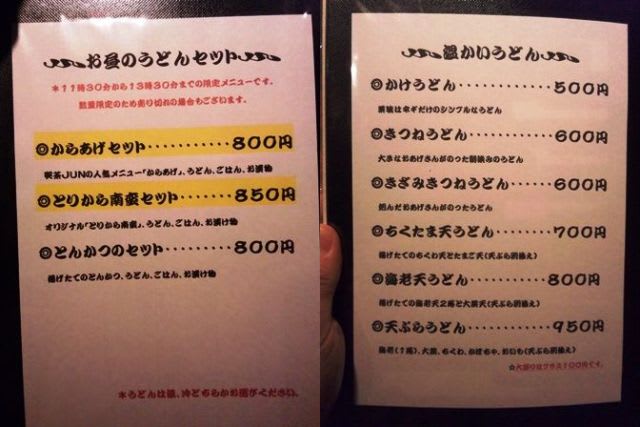 お昼のうどんセット
＊11時30分から13時30分までの限定メニューです。
数量限定のため売り切れの場合もございます。
◎からあげセット・・・・・・・・・・・800円
喫茶JUNの人気メニュー「からあげ」、うどん、ごはん、お漬物
◎とりから南蛮セット・・・・・・・・850円
オリジナル「とりから南蛮」、うどん、ごはん、お漬け物
◎とんかつのセット・・・・・・・・・800円
揚げたてのとんかつ、うどん、ごはん、お漬け物
＊うどんは温、冷どちらかお選びください。
温かいうどん
◎かけうどん・・・・・・・・・・・・500円
薬味はネギだけのシンプルなうどん
◎きつねうどん・・・・・・・・・・・600円
大きなおあげさんがのった うどん
◎きざみきつねうどん・・・・・・・・600円
刻んだおあげさんがのったうどん
◎ちくたま天うどん・・・・・・・・・700円
揚げたてのちくわ天とたまご天(天ぷら別添え)
◎海老天うどん・・・・・・・・・・・800円
揚げたての海老天2尾と大葉天(天ぷら別添え)
◎天ぷらうどん・・・・・・・・・・・950円
海老(1尾)、大葉、ちくわ、かぼちゃ、おいも(天ぷら別添え)
☆大盛りはプラス100円です。